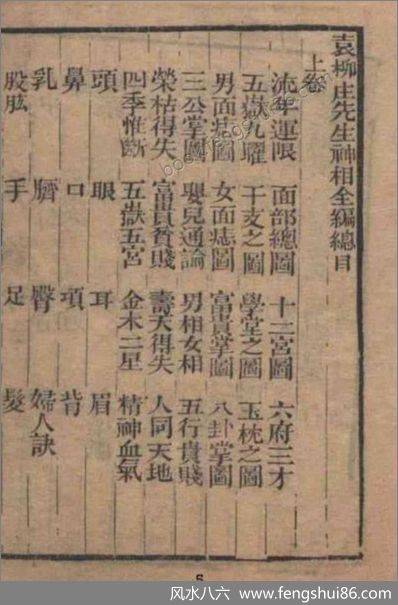 袁柳庄先生神相全編總目
上卷
流年運限 面部總圖 十二宮圖 六府三才
五嶽九曜 干支之圖 學堂之圖 玉枕之圖
男面痣圖 女面痣圖 富貴掌圖 八卦掌圖
三公掌圖 嬰兒通論 男相女相 五行貴賤
榮枯得失 富貴貧賤 壽夭得失 人同天地
四季惟斷 五嶽五宮 金木二星 精神血氣
頭 眼 耳 眉
鼻 口 項 背
乳 臍 臀 婦人訣
股肱 手 足 髮
6
风水八六 / www.fengshui86.com